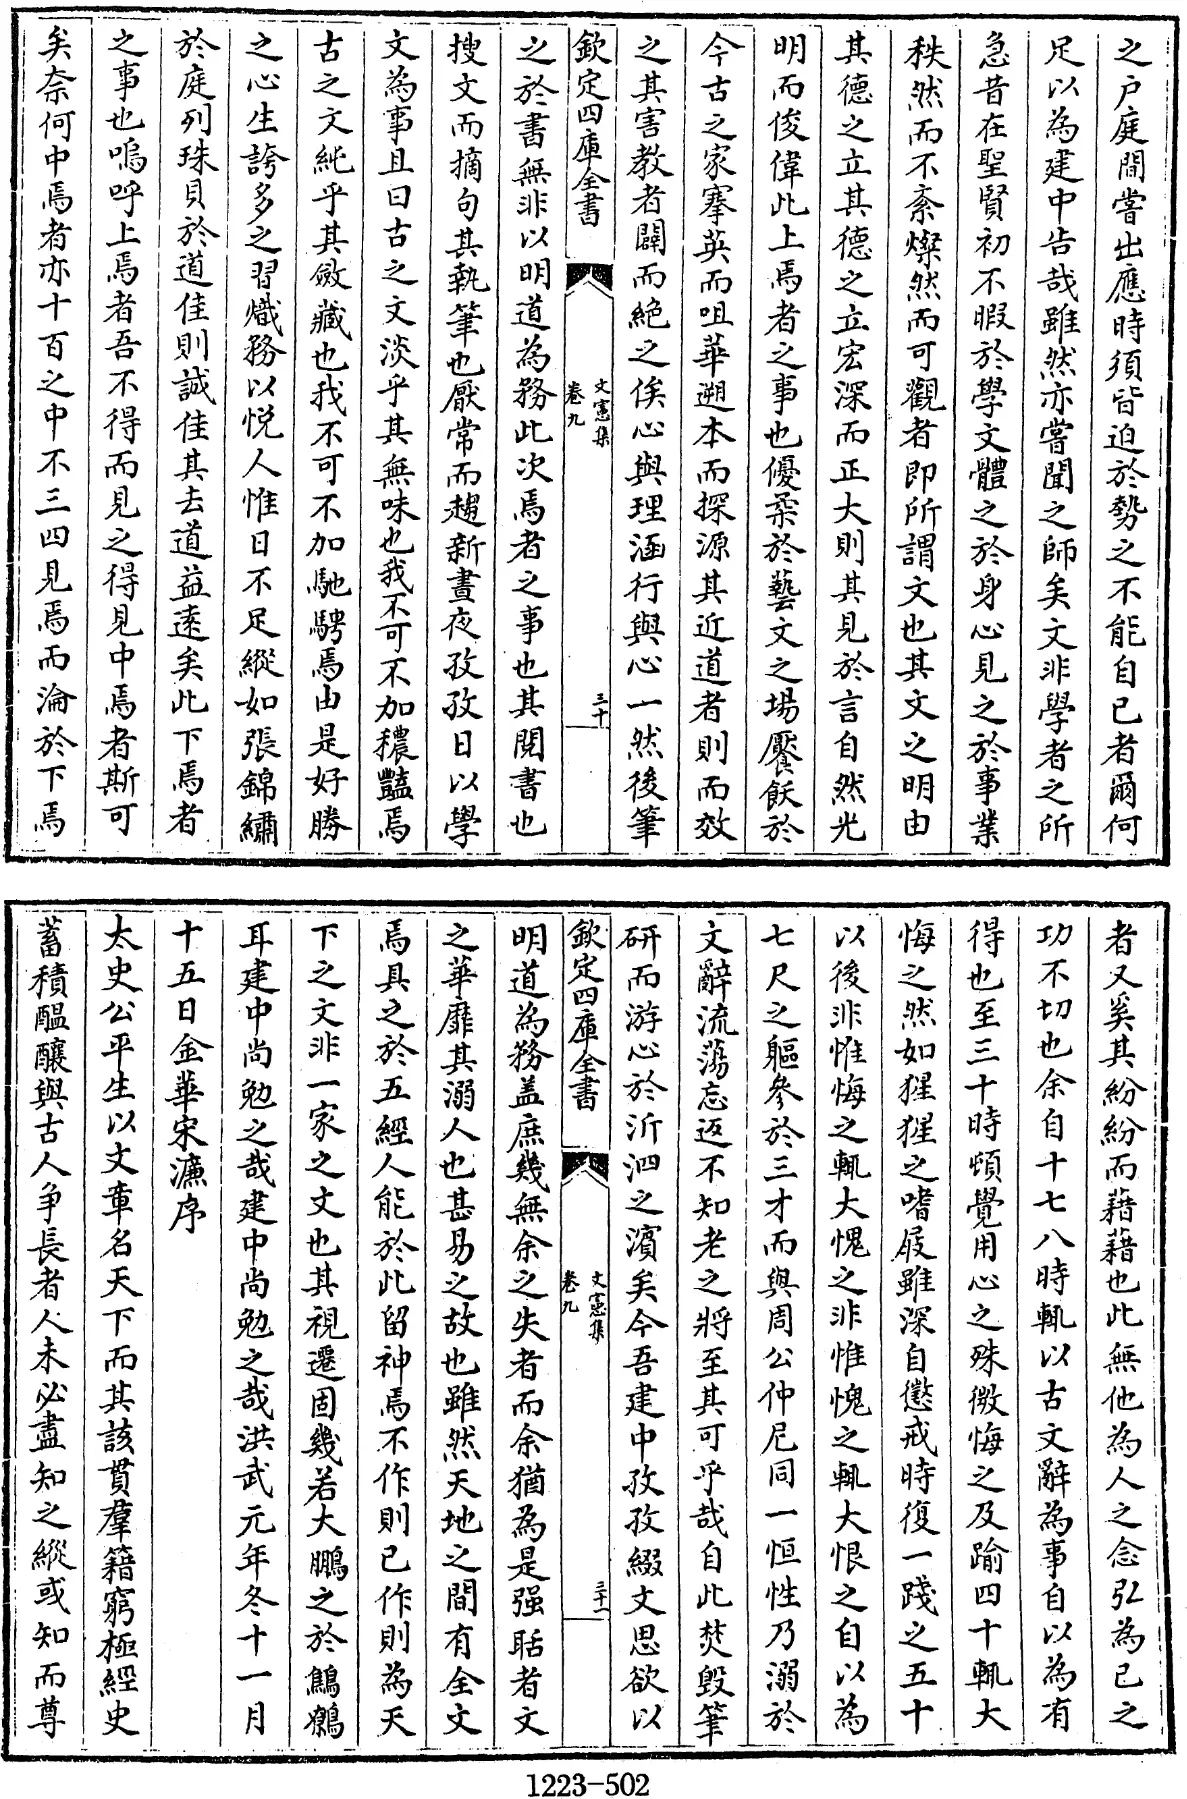 之户庭間嘗出應時須皆迫於勢之不能自已者爾何
足以為建中告哉雖然亦嘗聞之師矣文非學者之所
急昔在聖賢初不暇於學文體之於身心見之於事業
秩然而不紊燦然而可觀者即所謂文也其文之明由
其德之立其德之立宏深而正大則其見於言自然光
明而俊偉此上焉者之事也優柔於藝文之場饜飫於
今古之家搴英而咀華遡本而探源其近道者則而效
之其害教者闢而絶之俟心與理涵行與心一然後筆
欽定四庫全書
文憲集
卷九
三十
之於書無非以明道為務此次焉者之事也其閱書也
搜文而摘句其執筆也厭常而趨新晝夜孜孜日以學
文為事且曰古之文淡乎其無味也我不可不加穠豔焉
古之文純乎其斂藏也我不可不加馳騁焉由是好勝
之心生誇多之習熾務以悅人惟日不足縱如張錦繡
於庭列珠貝於道佳則誠佳其去道益遠矣此下焉者
之事也嗚呼上焉者吾不得而見之得見中焉者斯可
矣奈何中焉者亦十百之中不三四見焉而淪於下焉
者又奚其紛紛而藉藉也此無他為人之念弘為已之
功不切也余自十七八時輒以古文辭為事自以為有
得也至三十時頓覺用心之殊微悔之及踰四十輒大
悔之然如猩猩之嗜屐雖深自懲戒時復一踐之五十
以後非惟悔之輒大愧之非惟愧之輒大恨之自以為
七尺之軀參於三才而與周公仲尼同一恒性乃溺於
文辭流蕩忘返不知老之將至其可乎哉自此焚毀筆
研而游心於沂泗之濱矣今吾建中孜孜綴文思欲以
欽定四庫全書
文憲集
卷九
三十一
明道為務盖庶幾無余之失者而余猶為是强聒者文
之華靡其溺人也甚易之故也雖然天地之間有全文
焉具之於五經人能於此留神焉不作則已作則為天
下之文非一家之文也其視遷固幾若大鵬之於鷦鷯
耳建中尚勉之哉建中尚勉之哉洪武元年冬十一月
十五日金華宋濂序
太史公平生以文章名天下而其該貫羣籍窮極經史
蓄積醖釀與古人争長者人未必盡知之縱或知而尊
1223-502